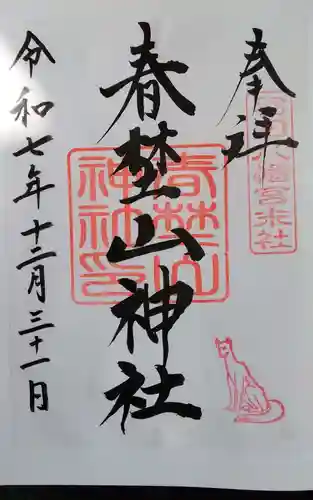 奉拝
春埜山神社
令和七年十二月三十一日
春埜山
神社印